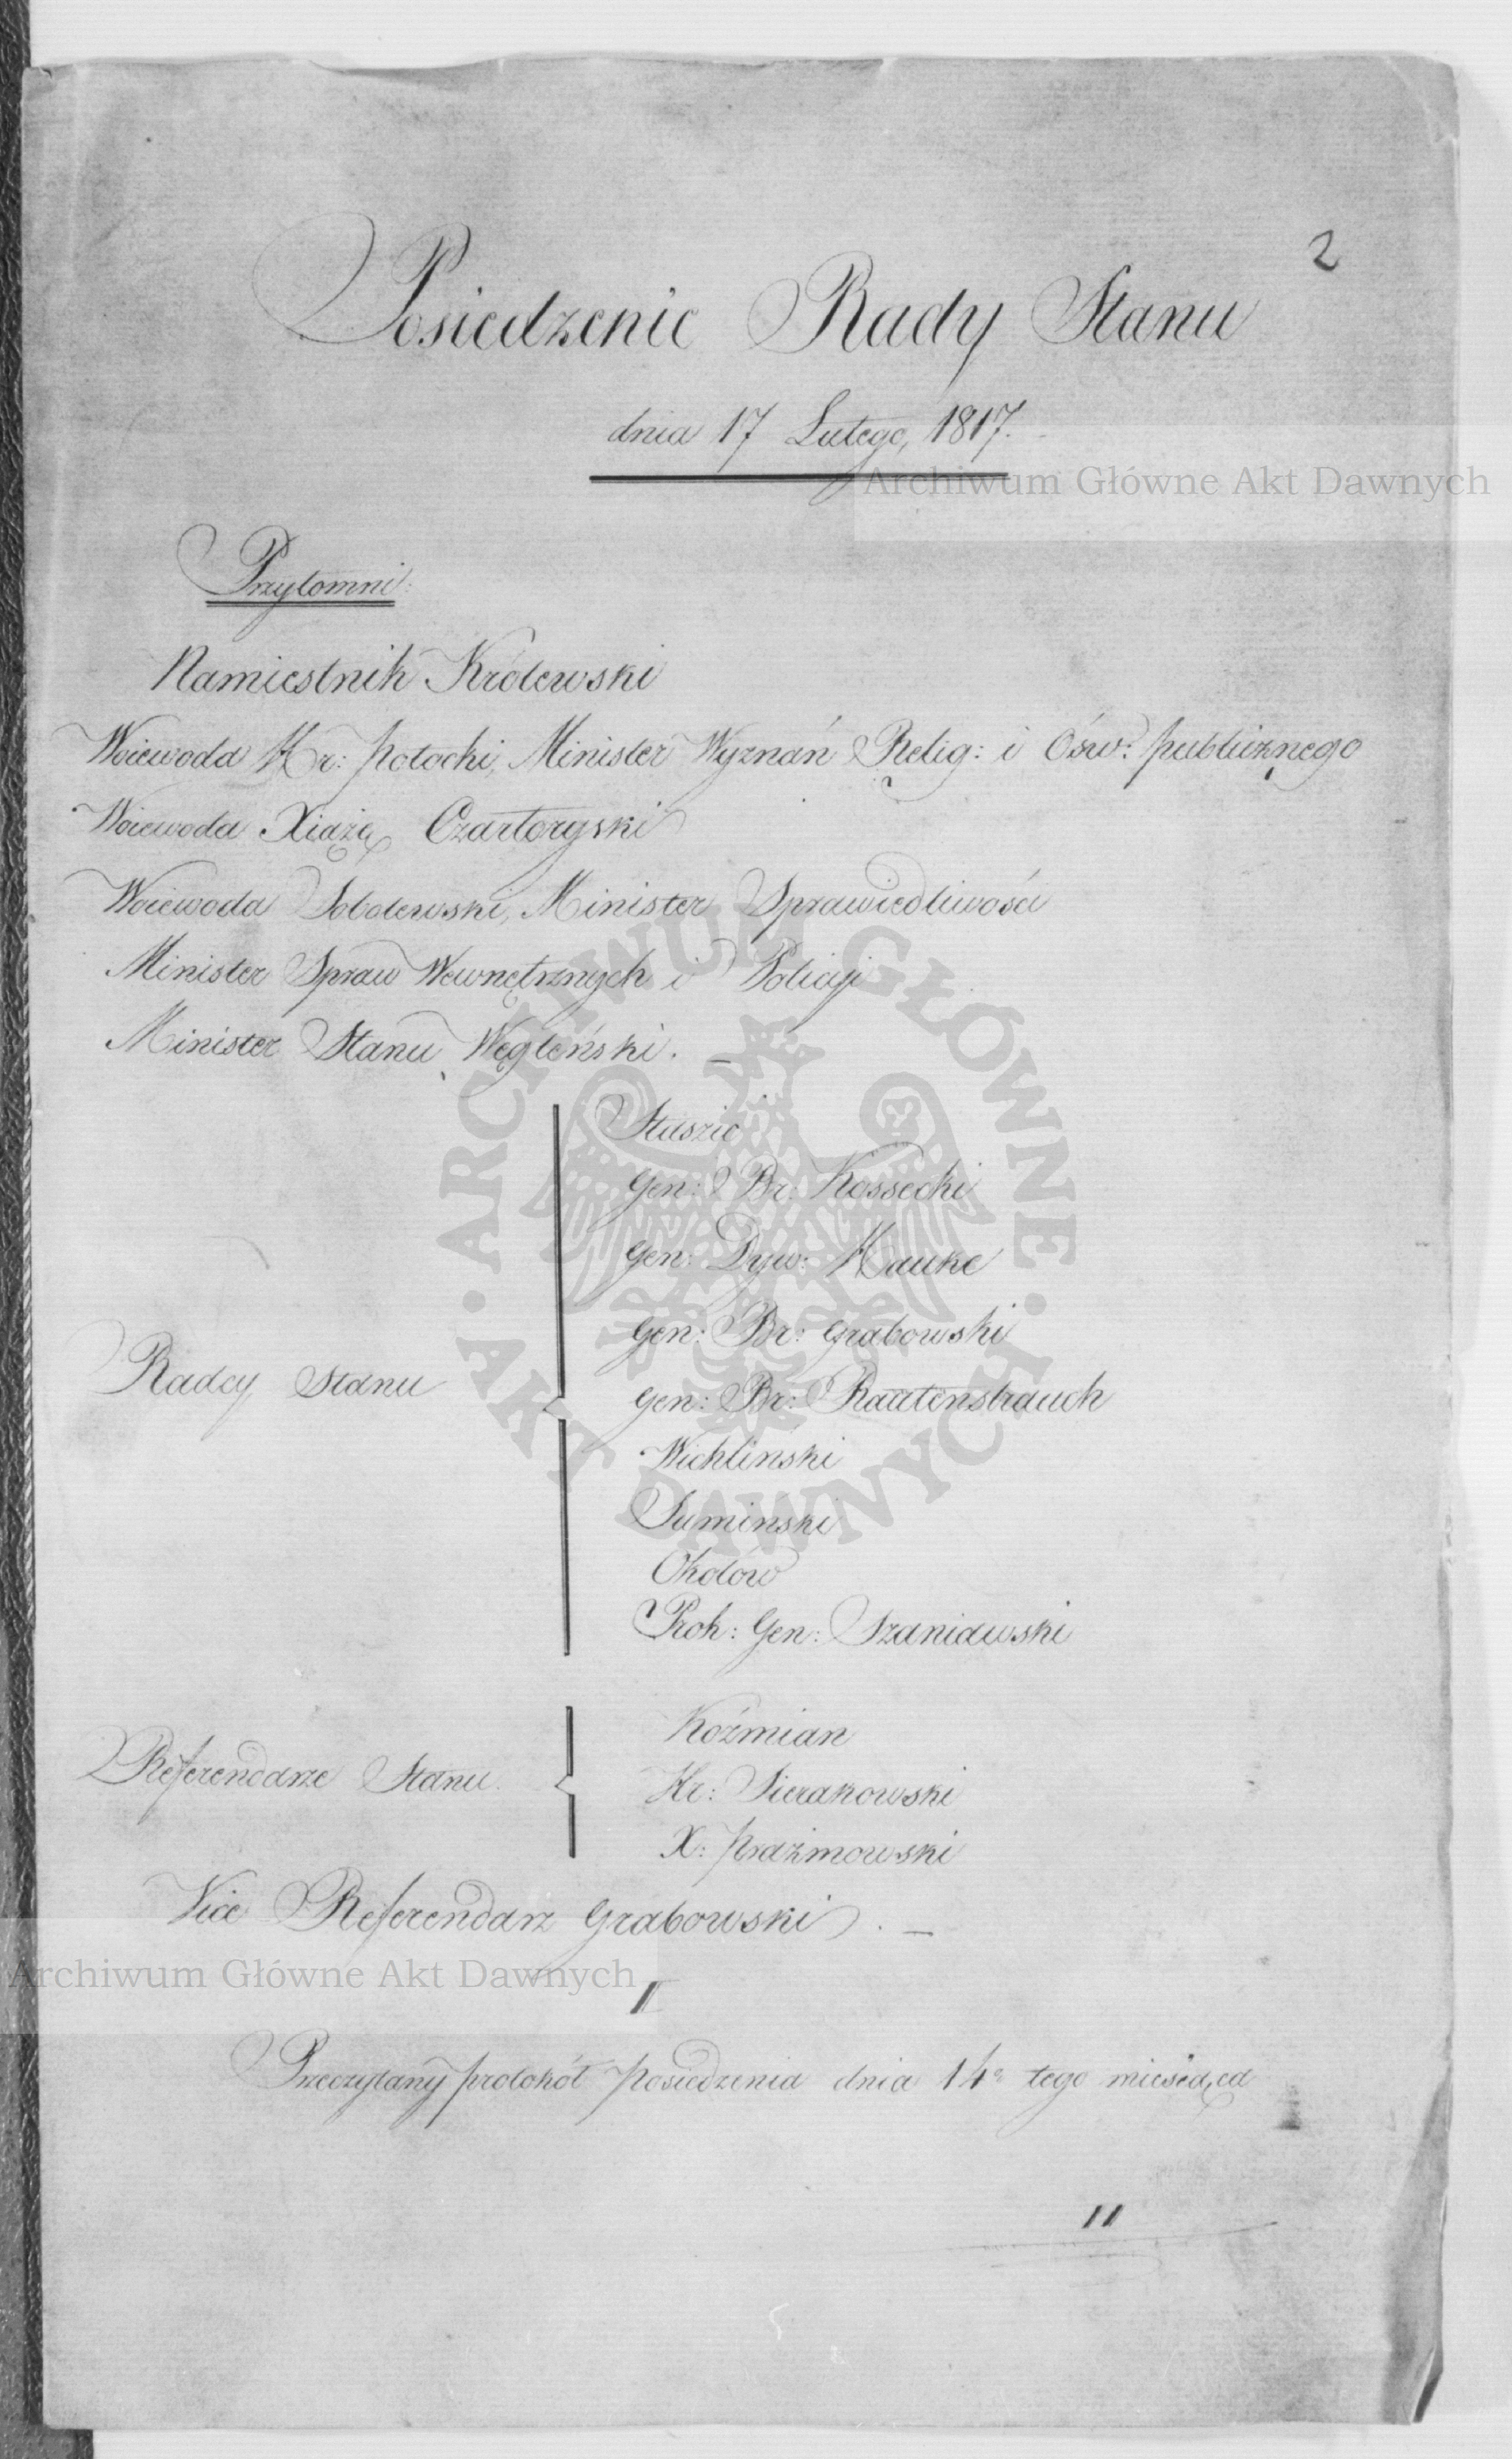 2
Posiedzenie Rady Stanu
dnia 17 Lutego, 1817.
Archiwum Główne Akt Dawnych
Przytomni:
Namiestnik Królewski
Woiewoda Hr: Potocki, Minister Wyznań Relig: i Ośw: publicznego
Woiewoda Xiążę Czartoryski
Woiewoda Sobolewski, Minister Sprawiedliwości
Minister Spraw Wewnętrznych i Policyi
Minister Stanu Węgleński. —
ARCHIWUM GŁÓWNE AKT DAWNYCH
Radcy Stanu
Staszic
Gen: Br: Kossecki
Gen: Dyw: Hauke
Gen: Br: Grabowski
Gen: Br: Rautenstrauch
Wichliński
Sumiński
Okołów
Prok: Gen: Szaniawski
Referendarze Stanu.
Koźmian
Hr: Sierakowski
X: Prażmowski
Vice Referendarz Grabowski. —
Archiwum Główne Akt Dawnych
I
Przeczytany protokół posiedzenia dnia 14º tego miesiąca
II